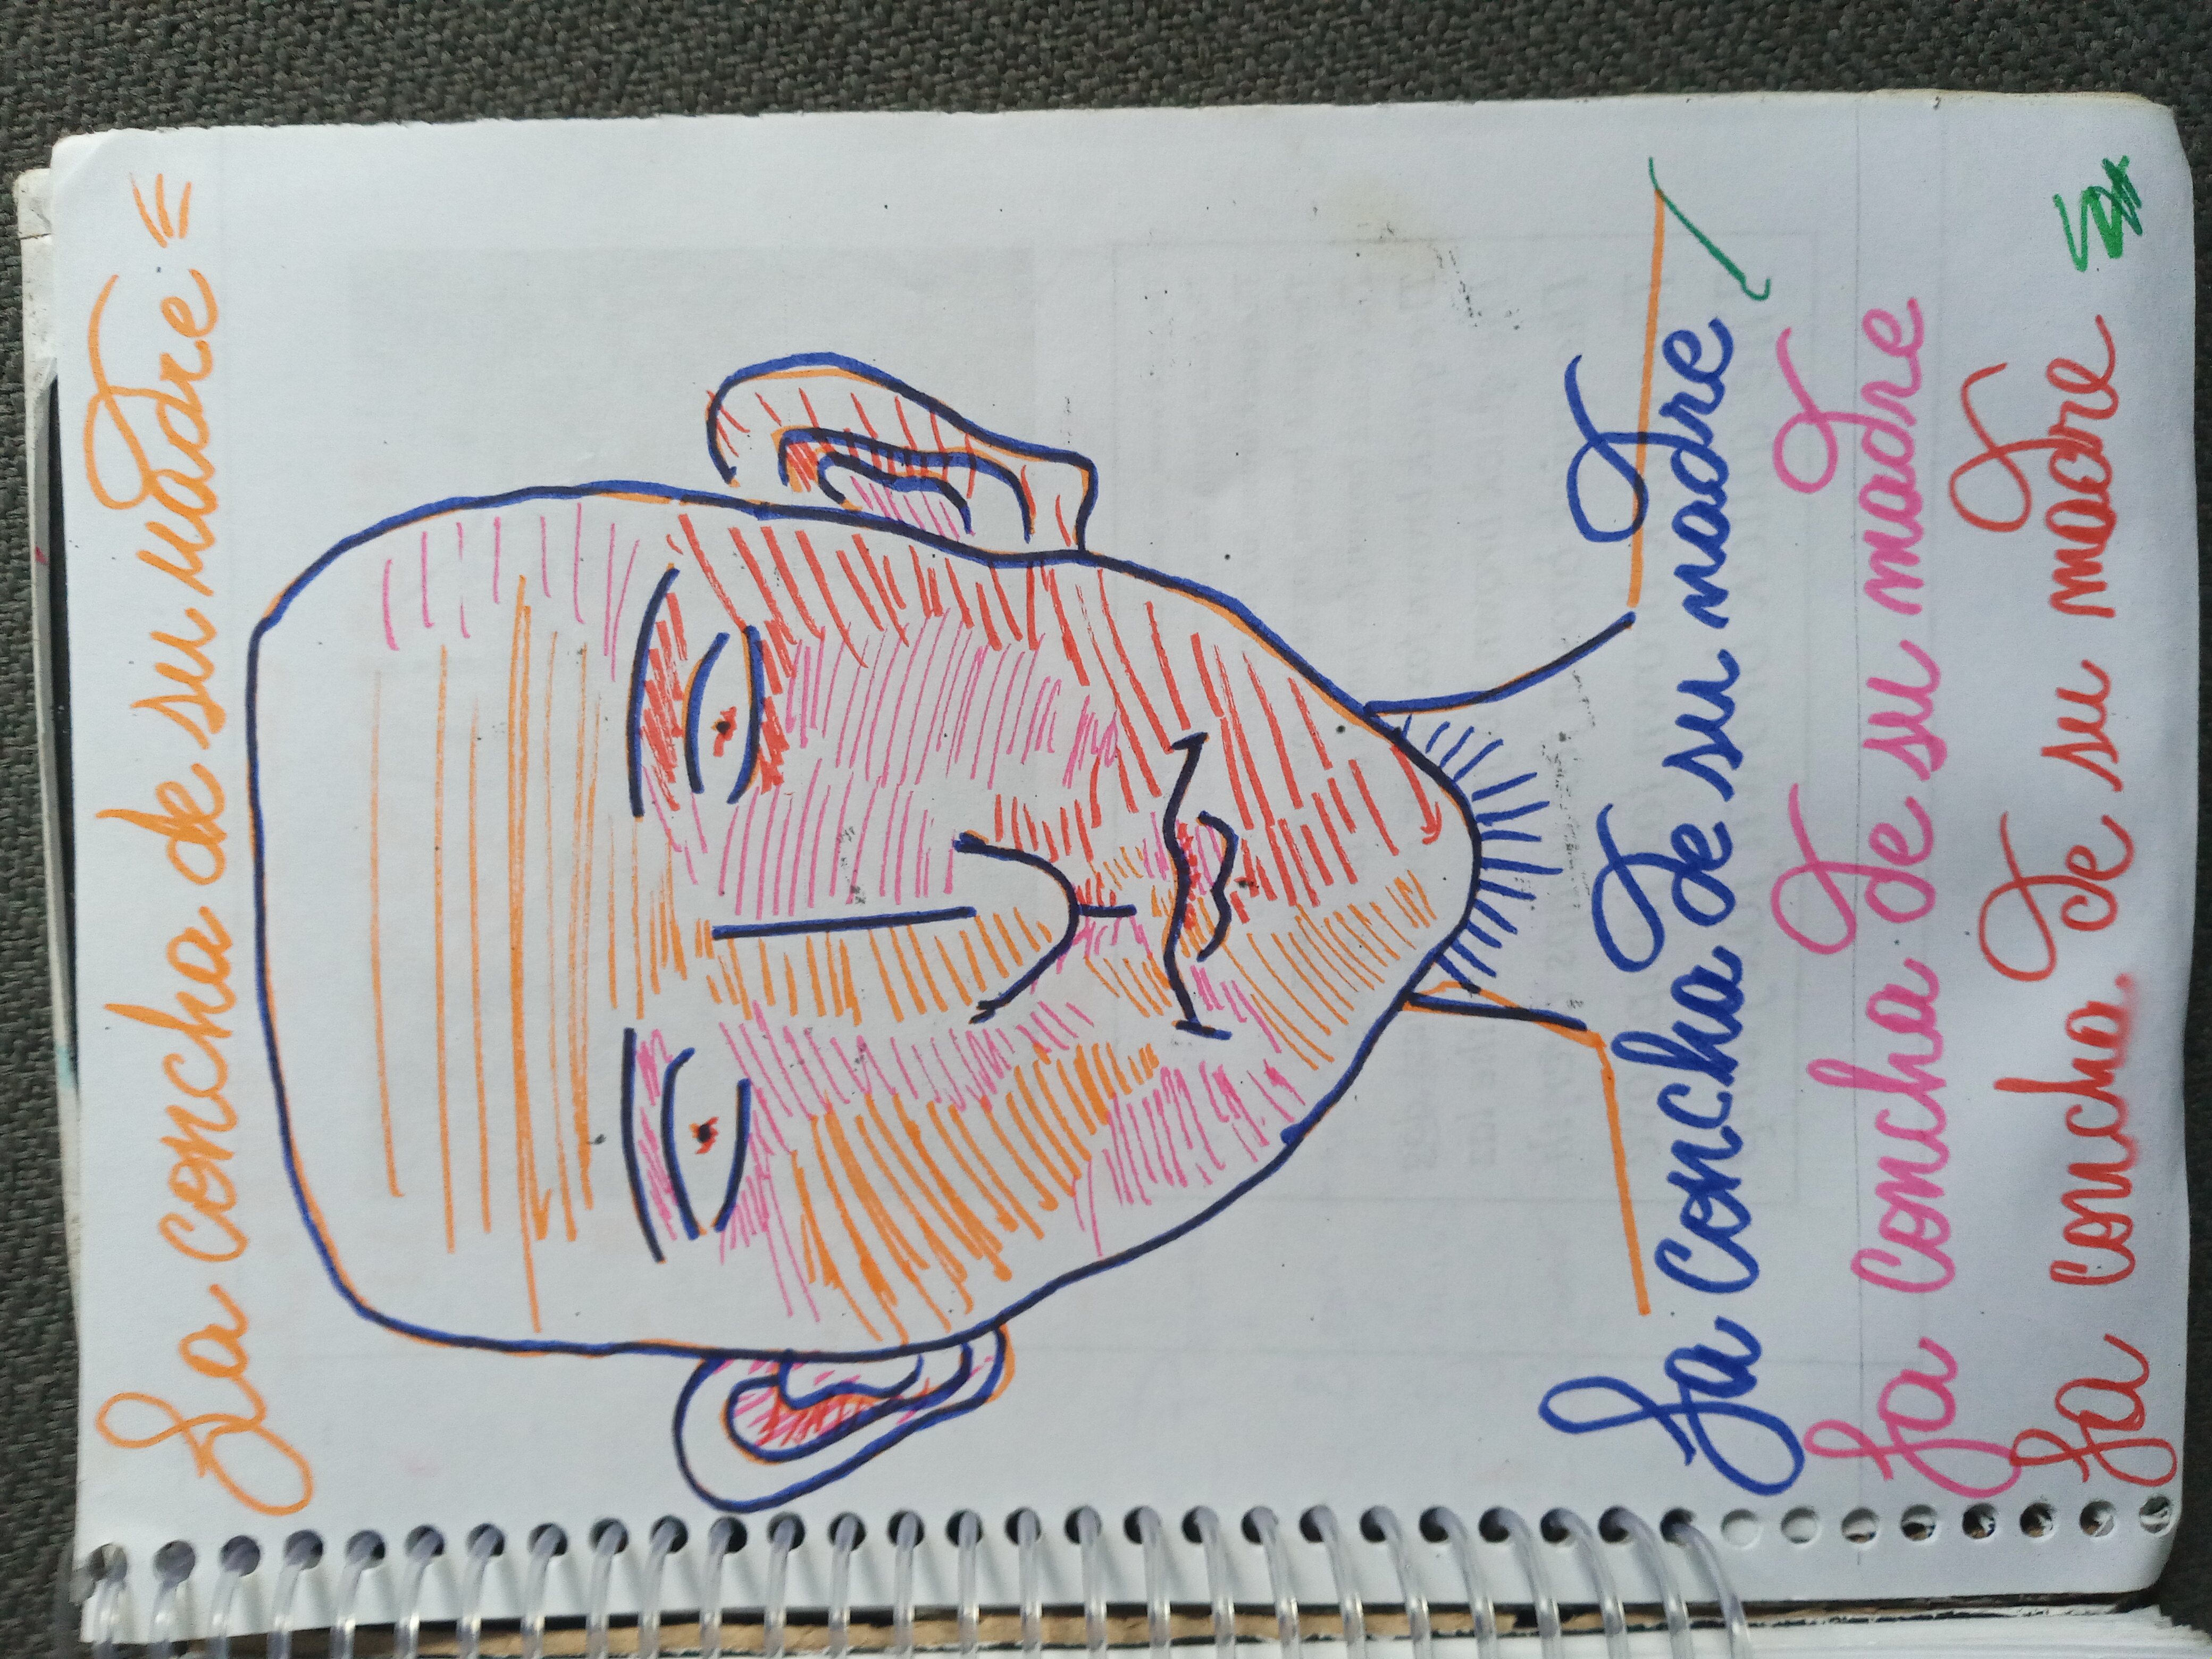 La concha de su madre =
La concha de su madre
La concha de su madre
La concha de su madre